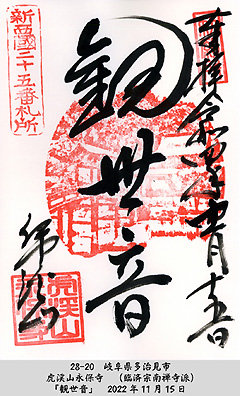 奉拝 令和四年十一月十五日
観世音
新西國二十五番札所
虎渓山
28-20 岐阜県多治見市
虎渓山永保寺 (臨済宗南禅寺派)
「観世音」 2022年11月15日